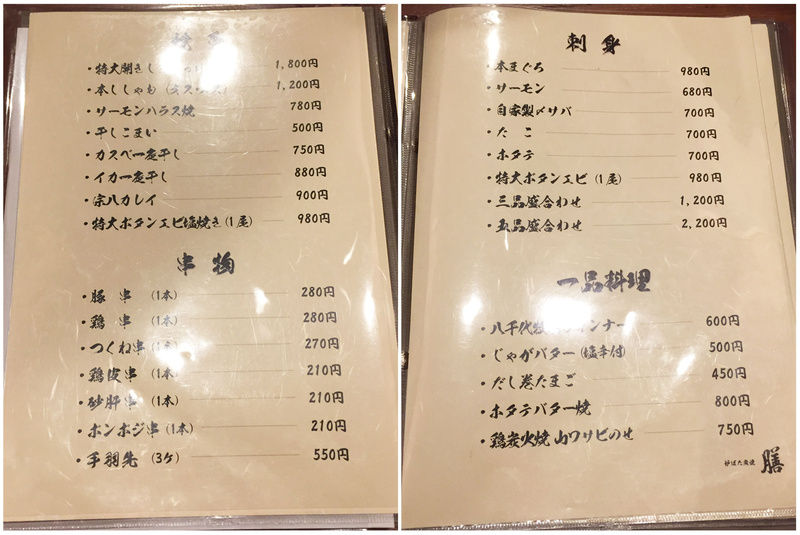 ・特大開きし 1,800円
・本ししゃも 1,200円
・サーモンハラス焼 780円
・干しこまい 500円
・カスベ一夜干し 750円
・イカ一夜干し 880円
・宗八カレイ 900円
・特大ボタンエビ塩焼き(1尾) 980円
串物
・豚串 (1本) 280円
・鶏串 (1本) 280円
・つくね串 270円
・鶏皮串 (1本) 210円
・砂肝串 (1本) 210円
・ボンボジ串 (1本) 210円
・手羽先 (3ケ) 550円
刺身
・本まぐろ 980円
・サーモン 680円
・自家製〆サバ 700円
・たこ 700円
・ホタテ 700円
・特大ボタンエビ (1尾) 980円
・三品盛合わせ 1,200円
・五品盛合わせ 2,200円
一品料理
・八千代 インナー 600円
・じゃがバター (塩辛付) 500円
・だし巻たまご 450円
・ホタテバター焼 800円
・鶏炭火焼 山ワサビのせ 750円
膳